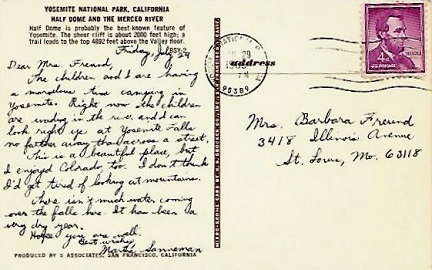 YOSEMITE NATIONAL PARK, CALIFORNIA
HALF DOME AND THE MERCED RIVER
Half Dome is probably the best-known feature of
Yosemite. The sheer cliff is about 2000 feet high; a
trail leads to the top 4892 feet above the Valley floor.
BSY-2
Friday, July 29
Dear Mrs. Freund,
The children and I are having
a marvelous time camping in
Yosemite. Right now the children
are wading in the river, and I can
look right up at Yosemite Falls
no farther away than across a street.
This is a beautiful place, but
I enjoyed Colorado too. I don't think
I'd get tired of looking at mountains.
There isn't much water coming
over the falls here. It has been a
very dry year.
Hope you are well.
Best wishes,
Martie Sanneman
PRODUCED BY S ASSOCIATES, SAN FRANCISCO, CALIFORNIA
address
29
95389
4¢
U.S. POSTAGE
Mrs. Barbara Freund
3418 Illinois Avenue
St. Louis, Mo. 63118